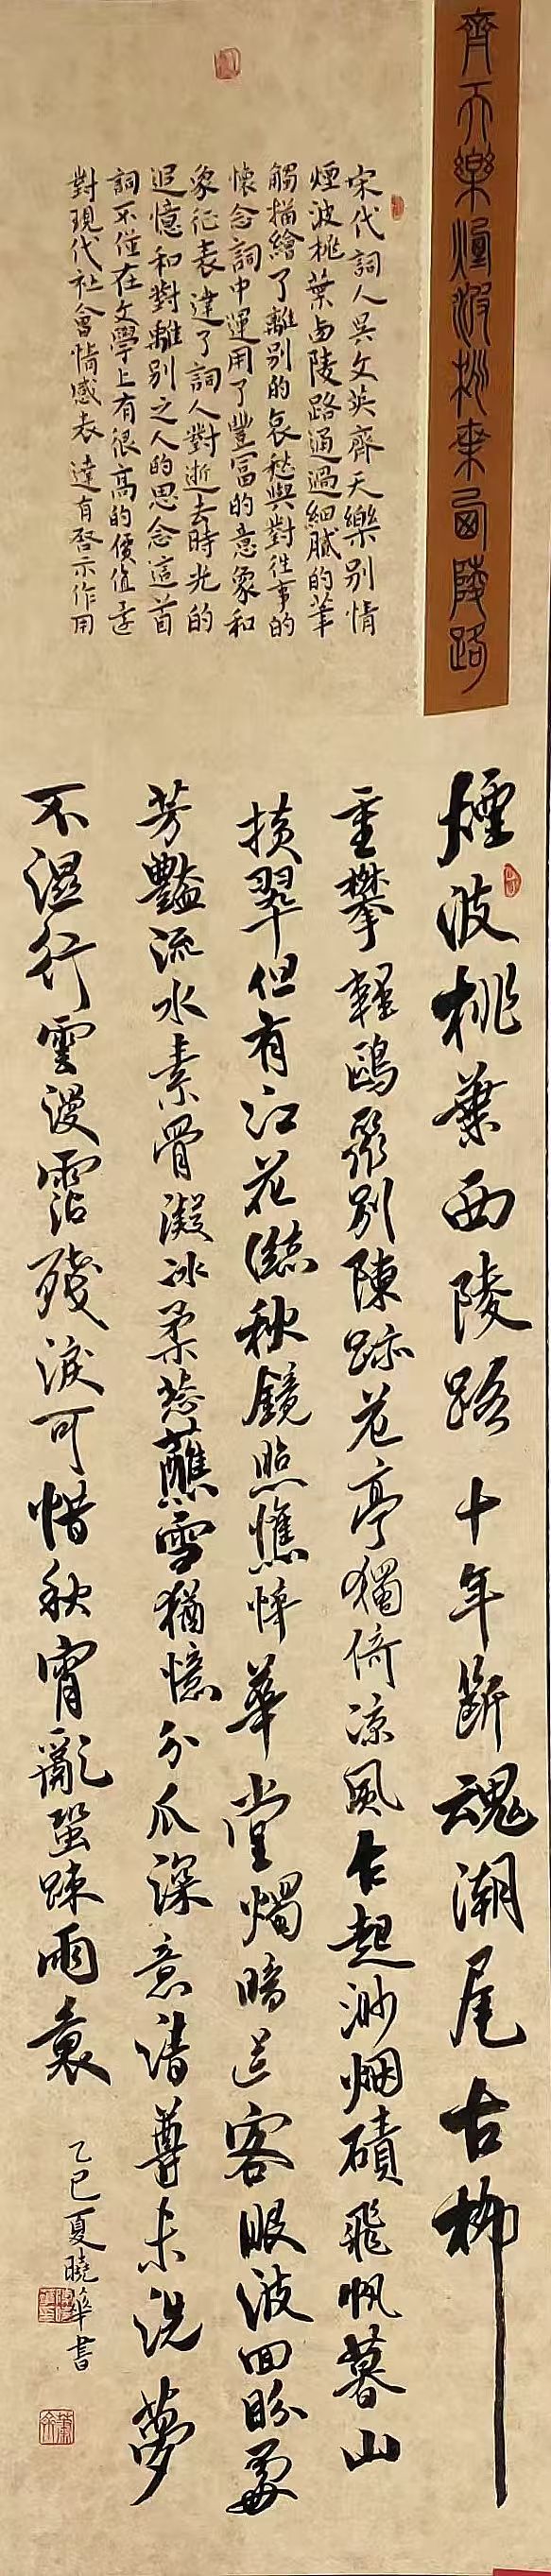 齊天樂煙波桃葉西陵路
宋代詞人吳文英齊天樂別情
煙波桃葉西陵路通過細膩的筆
觸描繪了離別的哀愁與對往事的
懷念詞中運用了豐富的意象和
象征表達了詞人對逝去時光的
追憶和對離別之人的思念這首
詞不僅在文學上有很高的價值還
對現代社會情感表達有啓示作用
煙波桃葉西陵路十年斷魂潮尾古柳
重攀輕鷗聚別陳跡危亭獨倚涼風乍起渺烟磧飛帆暮山
橫翠但有江花濨秋鏡照憔悴華堂燭暗送客眼波回盼處
芳豔流水素骨凝冰柔葱蘸雪猶憶分瓜深意清尊未洗夢
不濕行雲漫霑殘淚可惜秋宵亂蛩疎雨裏
乙巳夏曉華書